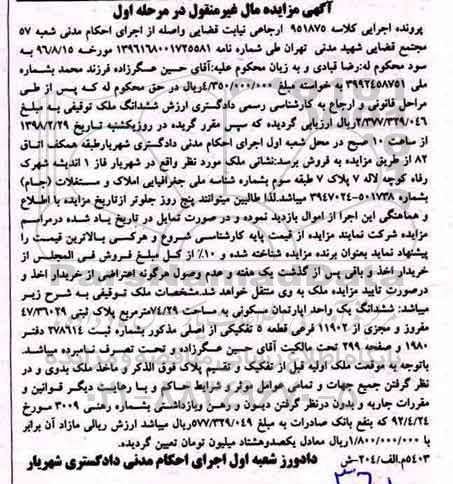 آگهی مزایده مال غیرمنقول در مرحله اول
پرونده اجرایی کلاسه ۹۵۱۸۷۵ ارجاعی نیابت قضایی واصله از اجرای احکام مدنی شعبه ۵۷
مجتمع قضایی شهید مدنی تهران طی شماره نامه ۱۳۹۶۱۶۸۰۰۱۷۲۵۵۸۱ مورخه ۹۶/۸/۱۵ به
سود محکوم له:رضا قبادی و به زیان محکوم علیه:آقای حسین عسگرزاده فرزند محمد بشماره
ملی ۳۹۹۲۴۵۸۷۵۱ به خواسته مبلغ ۴/۳۵۰/۰۰۰/۰۰۰ریال در حق محکوم له که پس از طی
مراحل قانونی و ارجاع به کارشناسی رسمی دادگستری ارزش ششدانگ ملک توقیفی به مبلغ
۲/۳۷۷/۳۲۹/۰۴۶ریال ارزیابی گردیده که سپس مقرر گردید در روزیکشنبه تاریخ ۱۳۹۸/۲/۲۹
از ساعت ۱۰ صبح در محل شعبه اول اجرای احکام مدنی دادگستری شهریارطبقه همکف اتاق
۸۲ از طریق مزایده به فروش برسد:نشانی ملک مورد نظر واقع در شهریار فاز ۱ اندیشه شهرک
رفاه کوچه لاله ۷ پلاک ۷ طبقه سوم بشماره شناسه ملی جغرافیایی املاک و مستغلات (جام)
بشماره ۵۰۱۷۳۸-۳۹۴۷۰۲۴ میباشد.لذا طالبین میتوانند پنج روز جلوتر ازتاریخ مزایده با اطلاع
و هماهنگی این اجرا از اموال بازدید نموده و در صورت تمایل در تاریخ یاد شده درمراسم
مزایده شرکت نمایند مزایده از قیمت پایه کارشناسی شروع و هرکسی بالاترین قیمت را
پیشنهاد نماید بعنوان برنده مزایده شناخته شده و ۱۰٪ از کل مبلغ فروش فی المجلس از
خریدار اخذ و باقی پس از گذشت یک هفته و عدم وصول هرگونه اعتراضی از خریدار اخذ و
درصورت تایید مزایده ملک به وی منتقل خواهد شد.مشخصات ملک توقیفی به شرح زیر
میباشد: ششدانگ یک واحد اپارتمان مسکونی به مساحت ۷۴/۲۹مترمربع پلاک ثبتی ۴۷/۳۶۰۲۹
مفروز و مجزی از ۱۱۹۰۲ فرعی قطعه ۵ تفکیکی از اصلی مذکور بشماره ثبت ۲۷۸۶۱۴ دفتر
۱۹۸۰ و صفحه ۲۹۹ تحت مالکیت آقای حسین عسگرزاده و تحت تصرف نامبرده میباشد.
باتوجه به موقعت ملک اولیه قبل از تفکیک و تقسیم پلاک فوق الذکر و ماخذ ملک بدوی و در
نظر گرفتن جمیع جهات و تمامی عوامل موثر و شرایط حاکم و با رعایت دیگر قوانین و
مقررات جاریه و بدون درنظر گرفتن دیون و رهن وبازداشتی بشماره رهنی ۳۰۰۹ مورخ
۹۲/۴/۲۴ که بنفع بانک صادرات به مبلغ ۵۷۷/۳۲۹/۰۴۹ریال میباشد ارزش ریالی مازاد آن برابر
با ۱/۸۰۰/۰۰۰/۰۰۰ریال معادل یکصدوهشتاد میلیون تومان تعیین گردیده.
۵۴۰۳م.الف/۲۰۴-ش دادورز شعبه اول اجرای احکام مدنی دادگستری شهریار